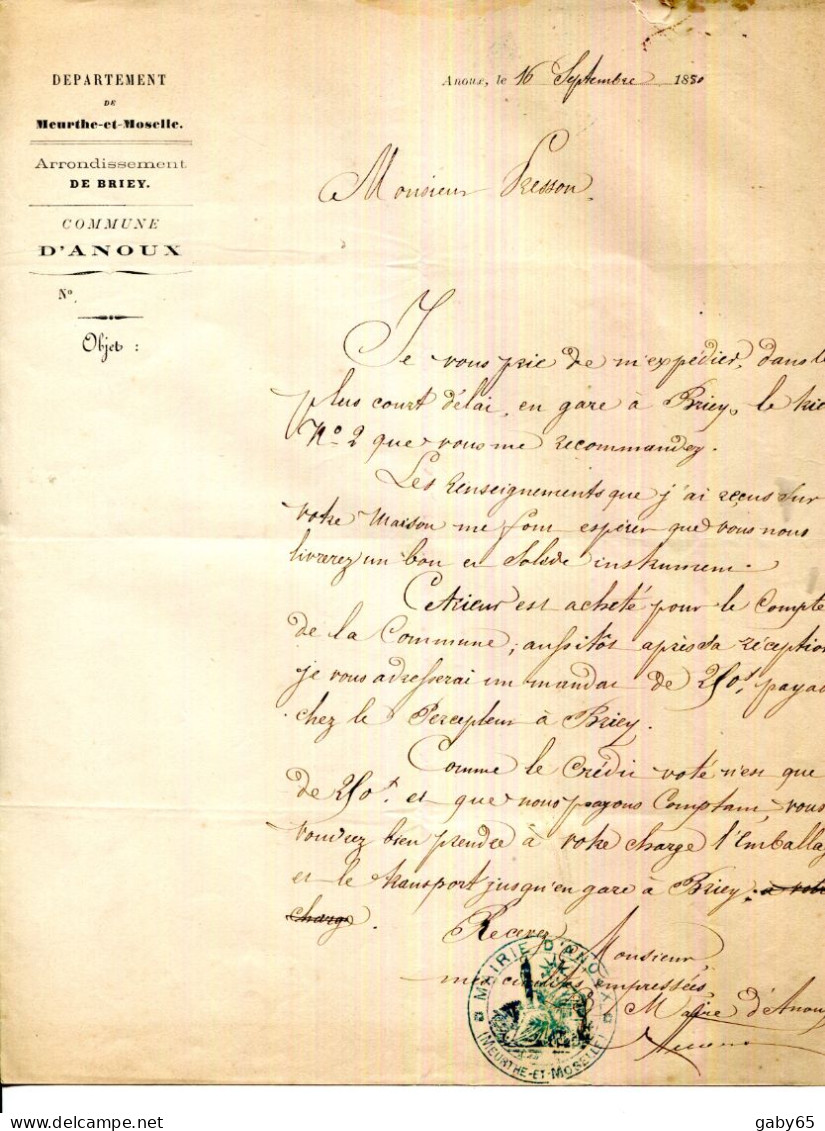 DEPARTEMENT
DE
Meurthe-et-Moselle.
Arrondissement
DE BRIEY.
COMMUNE
D'ANOUX
No.
Objet :
Anoux, le 16 Septembre 1880
Monsieur Presson,
Je vous prie de m'expédier, dans le
plus court délai, en gare à Briey, le
No 2 que vous me recommandez.
Les renseignements que j'ai reçus sur
votre maison me font espérer que vous nous
livrerez un bon et solide instrument.
Ce trieur est acheté pour le Compte
de la Commune, aussitôt après sa réception
je vous adresserai un mandat de 250f, paya
chez le Percepteur à Briey.
Comme le Crédit voté n'est que
de 250f. et que nous payons Comptant, vous
voudrez bien prendre à votre charge l'Emballag
et le transport jusqu'en gare à Briey, à votre
charge.
Recevez Monsieur,
mes civilités empressées
Maire d'Anoux
MAIRIE D'ANOUX
(MEURTHE-ET-MOSELLE)
delcampe.net
gaby65